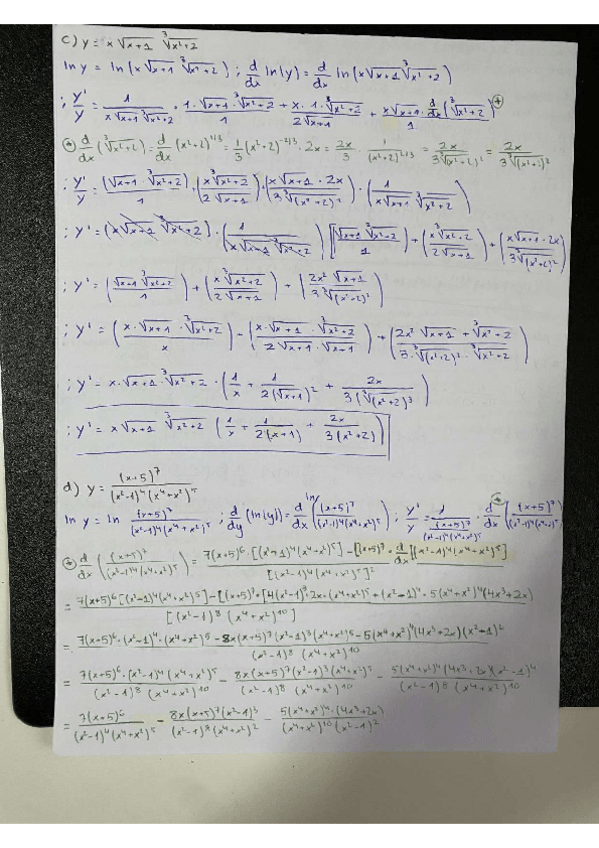 c) y = x √x+1 ∛x²+2
ln y = ln (x √x+1 ∛x²+2) ; d/dx ln(y) = d/dx ln (x √x+1 ∛x²+2)
; y'/y = 1/(x √x+1 ∛x²+2) · (1·√x+1·∛x²+2)/1 + (x·1·∛x²+2)/(2√x+1) + (x√x+1 · d/dx (∛x²+2))/1
d/dx (∛x²+2) = d/dx (x²+2)^1/3 = 1/3 (x²+2)^-2/3 · 2x = 2x/3 · 1/(x²+2)^2/3 = 2x/(3∛(x²+2)²) = 2x/(3∛(x²+2)²)
; y'/y = ((√x+1 · ∛x²+2)/1) · ((x ∛x²+2)/(2√x+1)) · ((x√x+1 · 2x)/(3∛(x²+2)²)) · (1/(x√x+1 ∛x²+2))
; y' = (x √x+1 ∛x²+2) · (1/(x√x+1 ∛x²+2)) [((√x+1 ∛x²+2)/1) + ((x ∛x²+2)/(2√x+1)) + ((x√x+1 · 2x)/(3∛(x²+2)²))
; y' = ((√x+1 ∛x²+2)/1) + ((x ∛x²+2)/(2√x+1)) + ((2x² √x+1)/(3∛(x²+2)²))
; y' = ((x·√x+1 · ∛x²+2)/x) - ((x·√x+1 · ∛x²+2)/(2√x+1 · √x+1)) + ((2x² √x+1 + ∛x²+2)/(3·∛(x²+2)² · ∛x²+2))
; y' = x·√x+1·∛x²+2 · (1/x + 1/(2(√x+1)²) + 2x/(3(∛x²+2)³))
; y' = x√x+1 ∛x²+2 (1/x + 1/(2(x+1)) + 2x/(3(x²+2)))
d) y = (x+5)⁷/((x²-1)⁴(x⁴+x²)⁵)
ln y = ln (x+5)⁷/((x²-1)⁴(x⁴+x²)⁵) ; d/dy (ln(y)) = d/dx ln((x+5)⁷/((x²-1)⁴(x⁴+x²)⁵)) ; y'/y = 1/((x+5)⁷/((x²-1)⁴(x⁴+x²)⁵)) · d/dx ((x+5)⁷/((x²-1)⁴(x⁴+x²)⁵))
d/dx ((x+5)⁷/((x²-1)⁴(x⁴+x²)⁵)) = (7(x+5)⁶·[(x²-1)⁴(x⁴+x²)⁵] - [(x+5)⁷ · d/dx](x²-1)⁴(x⁴+x²)⁵])/[(x²-1)⁴(x⁴+x²)⁵]²
= (7(x+5)⁶[(x²-1)⁴(x⁴+x²)⁵] - [(x+5)⁷·[4(x²-1)³·2x·(x⁴+x²)⁵ + (x²-1)⁴ · 5(x⁴+x²)⁴(4x³+2x))/([(x²-1)⁸ (x⁴+x²)¹⁰])
= (7(x+5)⁶·(x²-1)⁴·(x⁴+x²)⁵ - 8x(x+5)⁷(x²-1)³(x⁴+x²)⁵ - 5(x⁴+x²)⁴(4x³+2x)(x²-1)⁴)/((x²-1)⁸ (x⁴+x²)¹⁰)
= (7(x+5)⁶·(x²-1)⁴(x⁴+x²)⁵)/((x²-1)⁸ (x⁴+x²)¹⁰) - (8x(x+5)⁷(x²-1)³(x⁴+x²)⁵)/((x²-1)⁸ (x⁴+x²)¹⁰) - (5(x⁴+x²)⁴(4x³+2x)(x²-1)⁴)/((x²-1)⁸ (x⁴+x²)¹⁰)
= 7(x+5)⁶/((x²-1)⁴(x⁴+x²)⁵) - (8x(x+5)⁷(x²-1)³)/((x²-1)⁸(x⁴+x²)²) - (5(x⁴+x²)⁴·(4x³+2x))/((x⁴+x²)¹⁰(x²-1)²)